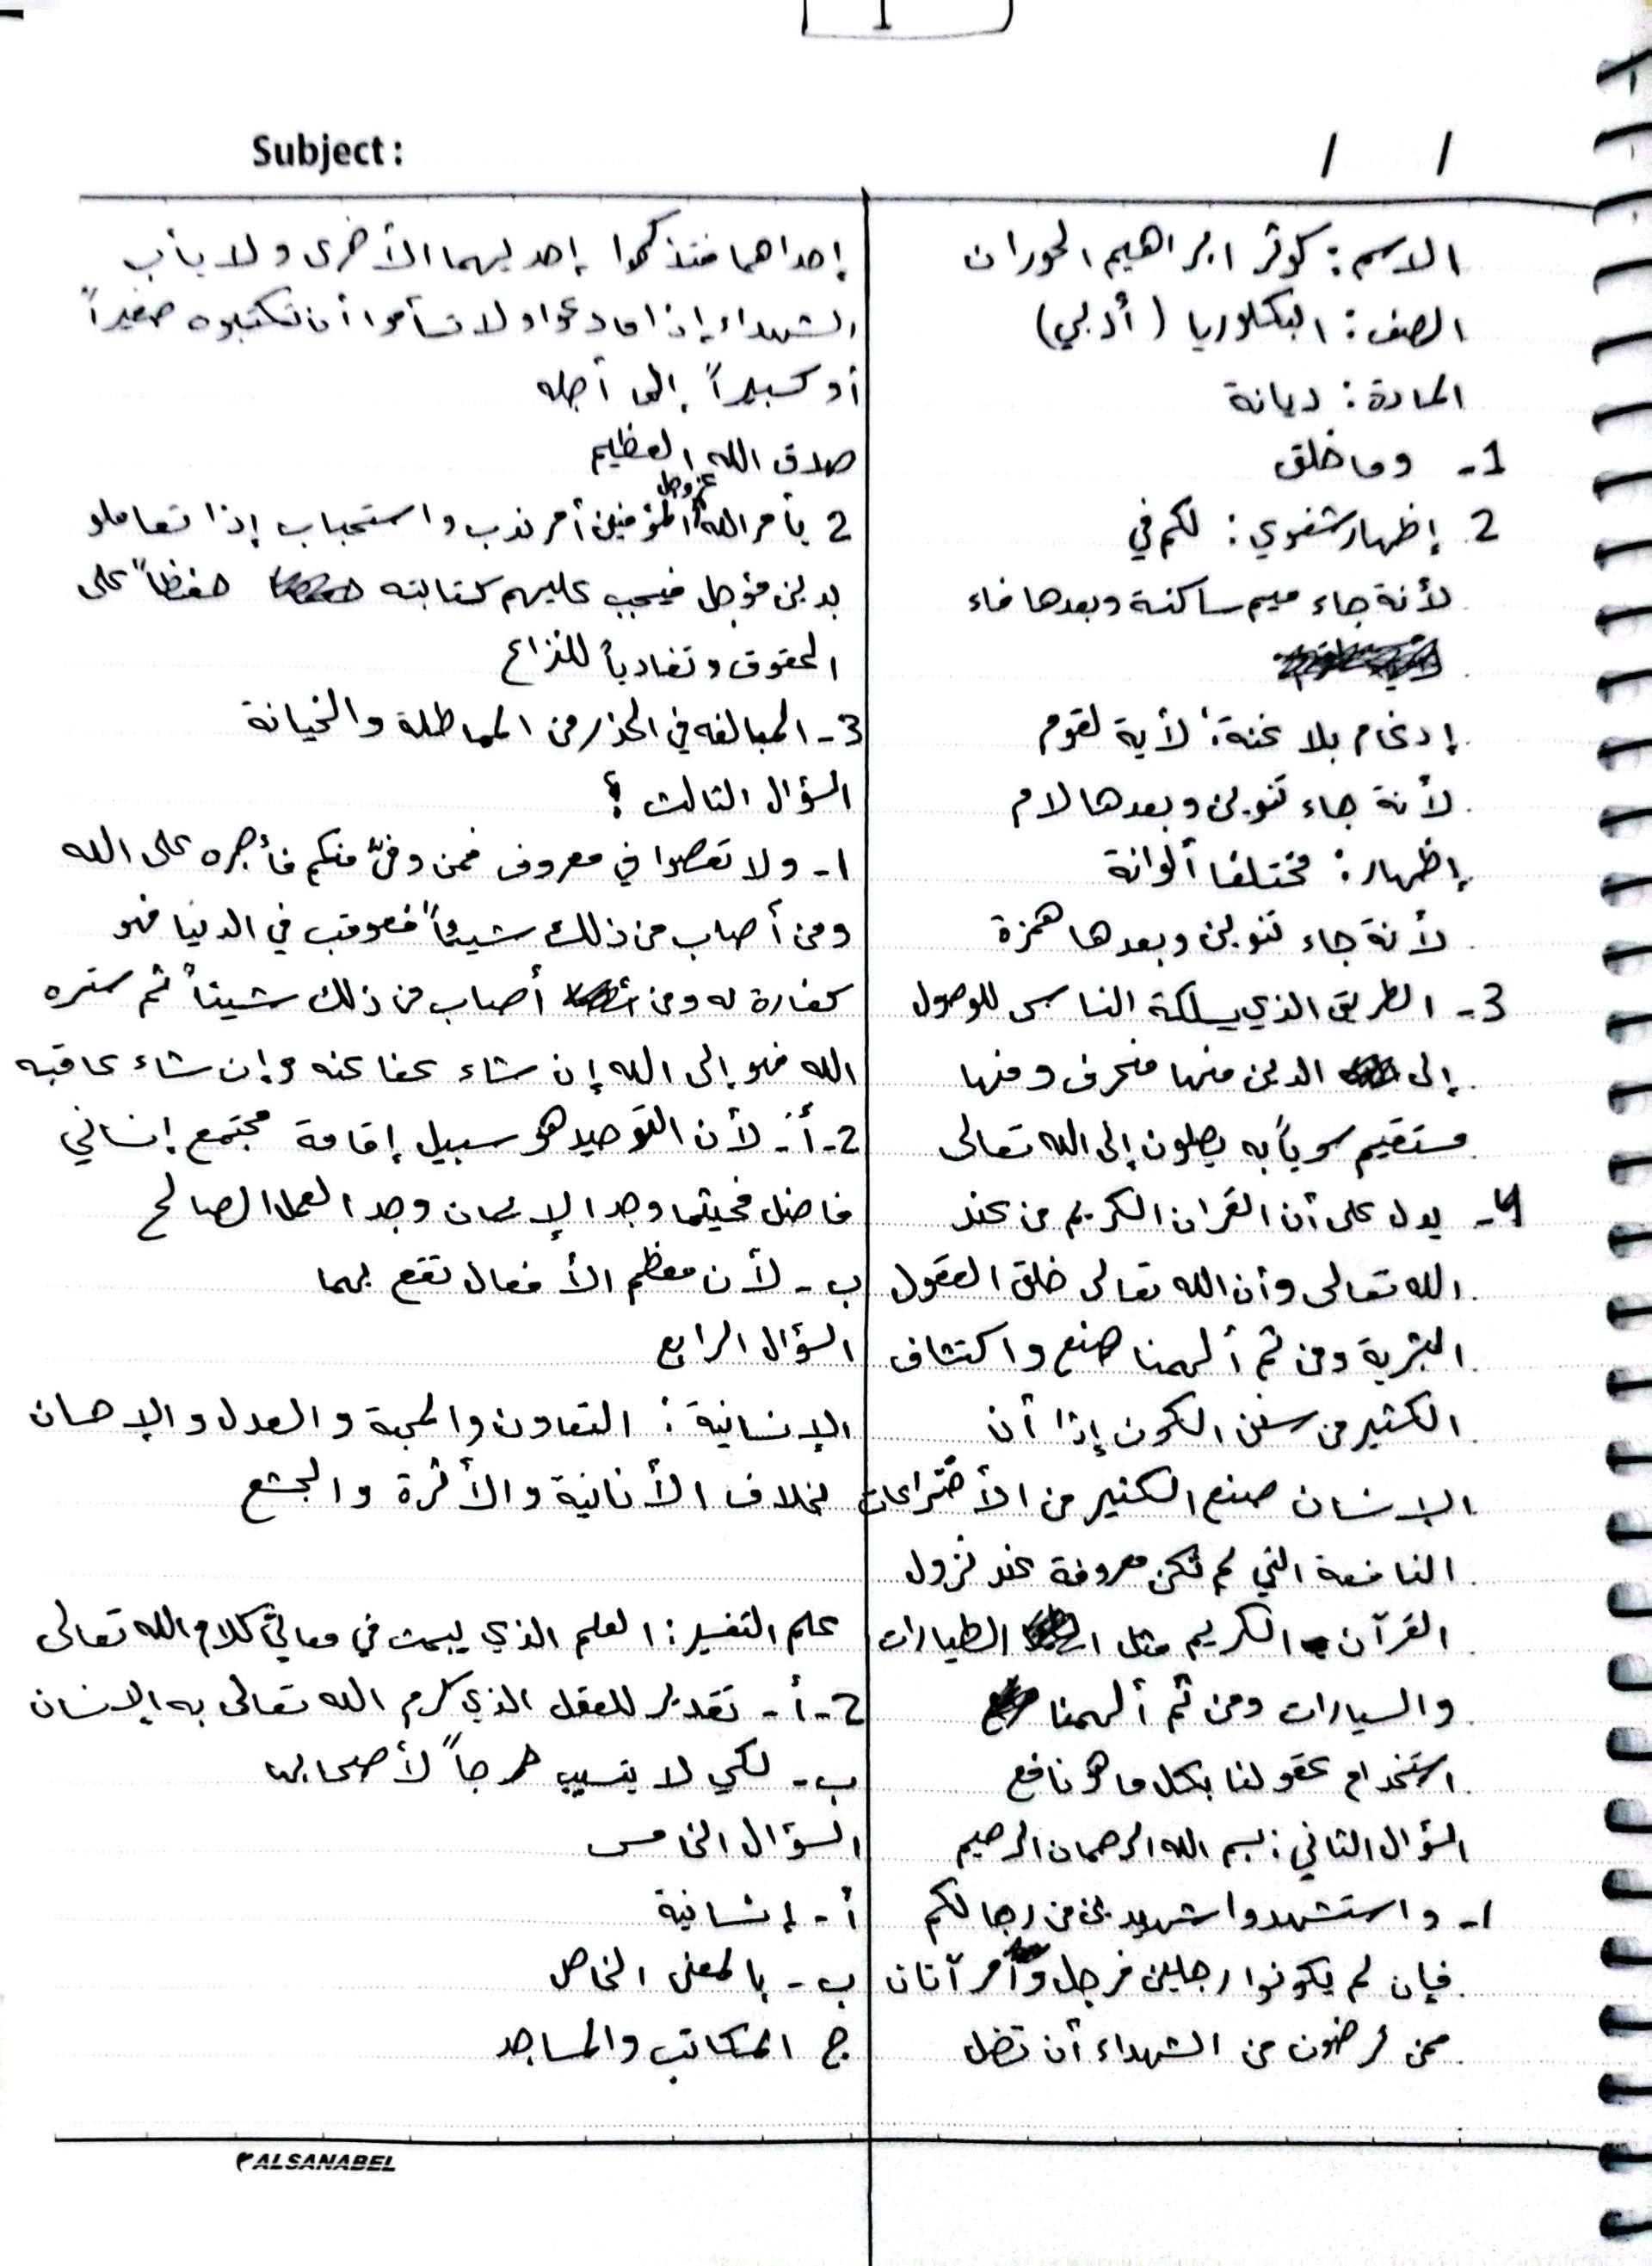 1
Subject:
/ /
الاسم: كوثر ابراهيم الحوران
الصف: البكلوريا (أدبي)
المادة: ديانة
1- وما خلق
2 إظهار شفوي: لكم في
لأنة جاء ميم ساكنة وبعدها فاء
إدغام بلا غنة: لأية لقوم
لأنة جاء تنوين وبعدها لام
إظهار: مختلفا ألوانة
لأنة جاء تنوين وبعدها همزة
3- الطريق الذي يسلكة الناس للوصول
إلى الدين منها منحرف ومنها
مستقيم سوياً به يصلون إلى الله تعالى
4- يدل على أن القران الكريم من عند
الله تعالى وأن الله تعالى خلق العقول
البشرية ومن ثم ألهمنا صنع واكتشاف
الكثير من سنن الكون إذا أن
الإنسان صنع الكثير من الأختراعات
النافعة التي لم تكن معروفة عند نزول
القرآن الكريم مثل الطيارات
والسيارات ومن ثم ألهمنا
استخدام عقولنا بكل ما هو نافع
السؤال الثاني: بسم الله الرحمان الرحيم
1- واستشهدوا شهيدين من رجالكم
فإن لم يكونوا رجلين فرجل وأمرآتان
ممن ترضون من الشهداء أن تضل
إحداهما فتذكموا إحديهما الأخرى ولا يأب
الشهداء إذا ما دعوا ولا تسأموا أن تكتبوه صغيراً
أو كبيراً إلى أجله
صدق الله العظيم
2 يأمر الله عزوجل المؤمنين أمر ندب واستحباب إذا تعاملو
بدين مؤجل فيجب عليهم كتابته حفظاً على
الحقوق وتفادياً للنزاع
3- المبالغه في الحذر من المماطلة والخيانة
السؤال الثالث:
1- ولا تعصوا في معروف فمن وفىّ منكم فأجره على الله
ومن أصاب من ذلك شيئاً فعوقب في الدنيا فهو
كفارة له ومن أصاب من ذلك شيئاً ثم ستره
الله فهو إلى الله إن شاء عفا عنه وإن شاء عاقبه
2- أ- لأن التوحيد هو سبيل إقامة مجتمع إنساني
فاضل فحيثما وجد الإيمان وجد العمل الصالح
ب- لأن معظم الأفعال تقع بهما
السؤال الرابع
الإنسانية: التعاون والمحبة والعدل والإحسان
بخلاف الأنانية والأثرة والجشع
علم التفسير: العلم الذي يبحث في معاني كلام الله تعالى
2- أ- تقدير للعقل الذي كرم الله تعالى به الإنسان
ب- لكي لا يتسبب حرجاً لأصحابها
السؤال الخامس
أ- إنسانية
ب- بالمعنى الخاص
ج المكاتب والمساجد
ALSANABEL